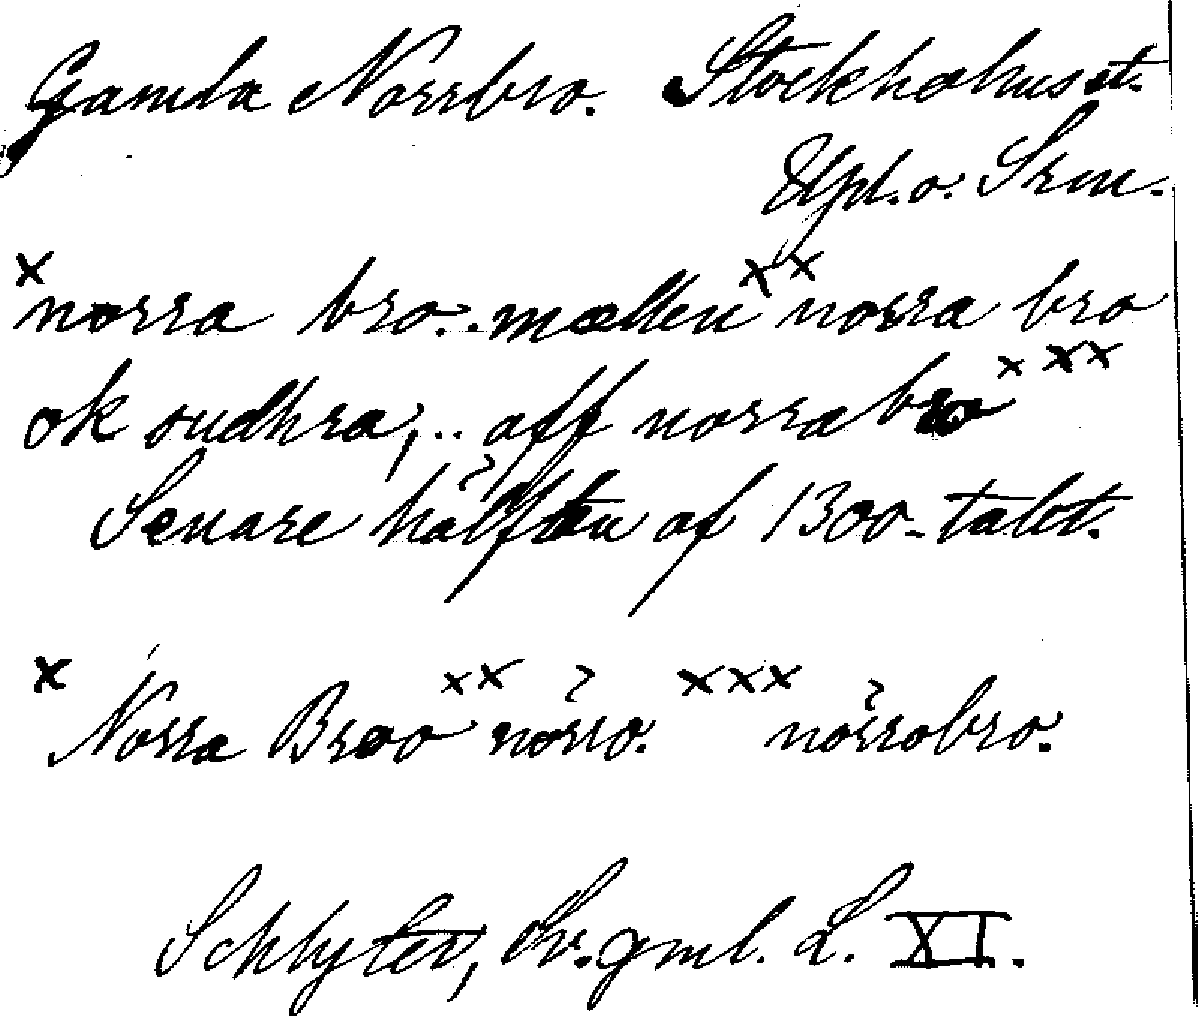 Gamla Norrbro. Stockholms st.
Upl. o. Srm.
x norra bro. . mællen xx norra bro
ok sudhra, .. aff norrabro xxx
Senare hälften af 1300-talet.
x Norra Broo xx nörro. xxx nörrobro.
Schlyter, Sv. gml. L. XI.